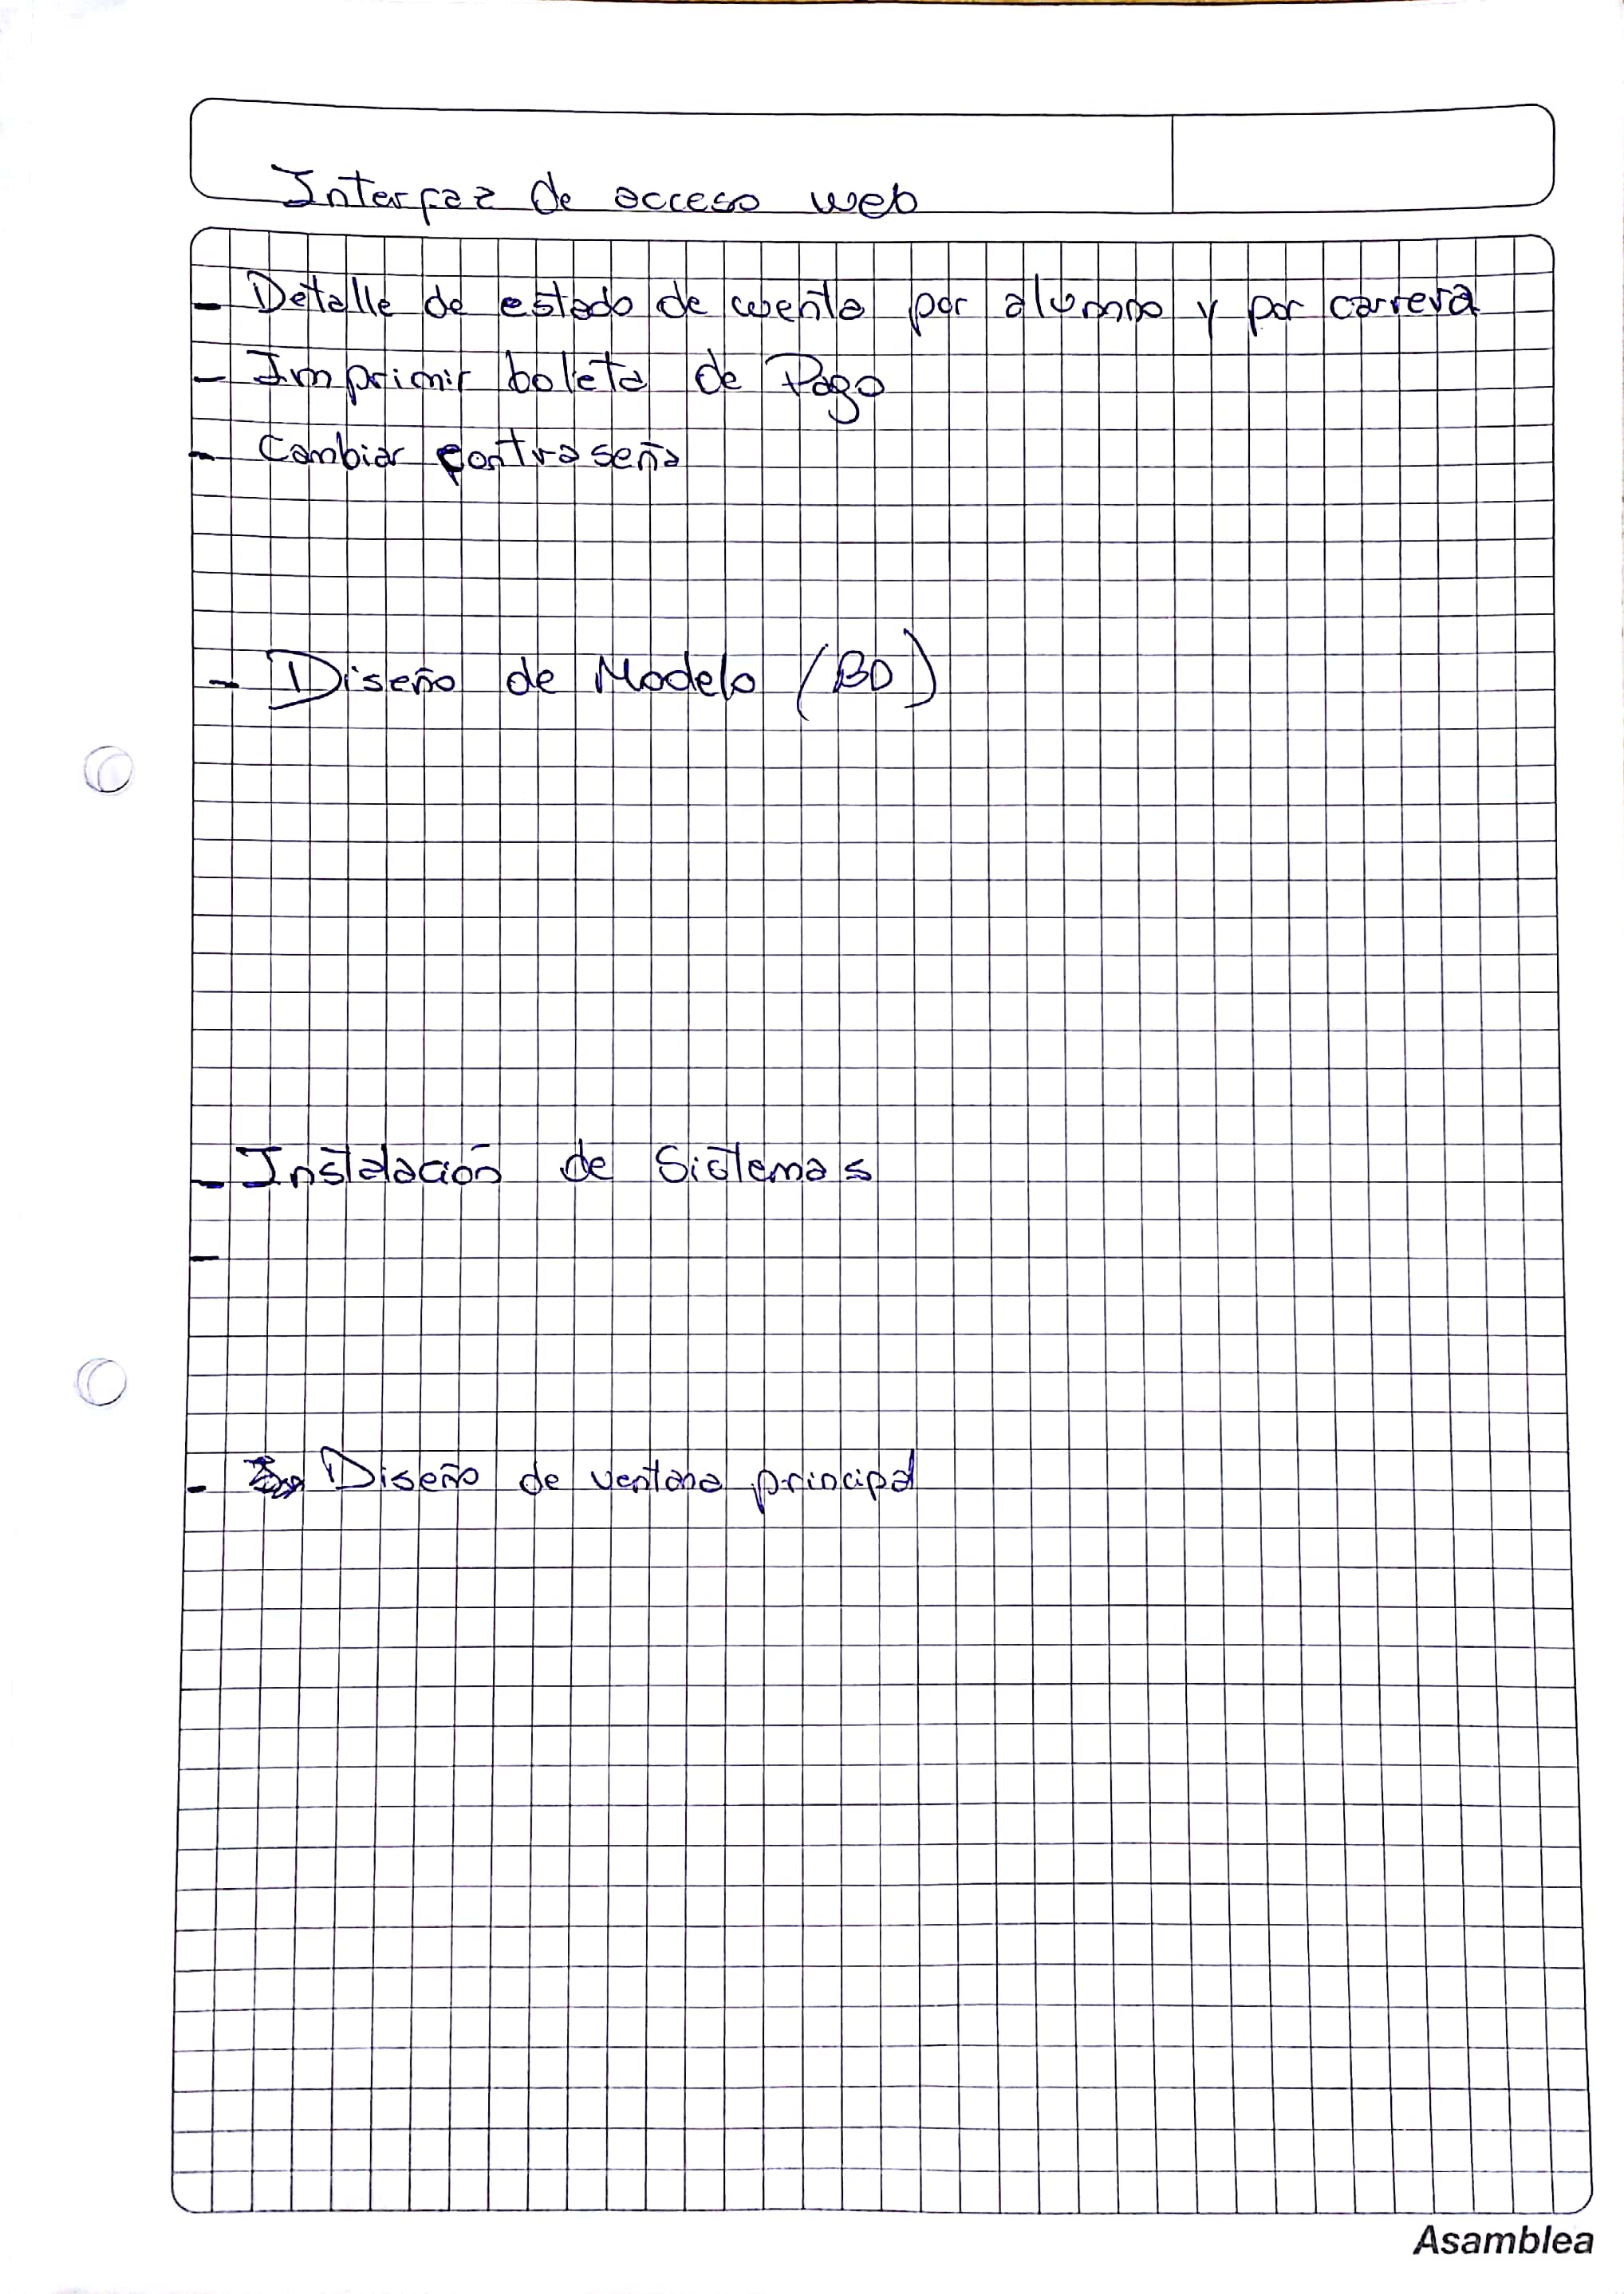 Interfaz de acceso web
- Detalle de estado de cuenta por alumno y por carrera
- Imprimir boleta de Pago
- Cambiar contraseña
- Diseño de Modelo (BD)
- Instalación de Sistemas
-
- Diseño de ventana principal
Asamblea